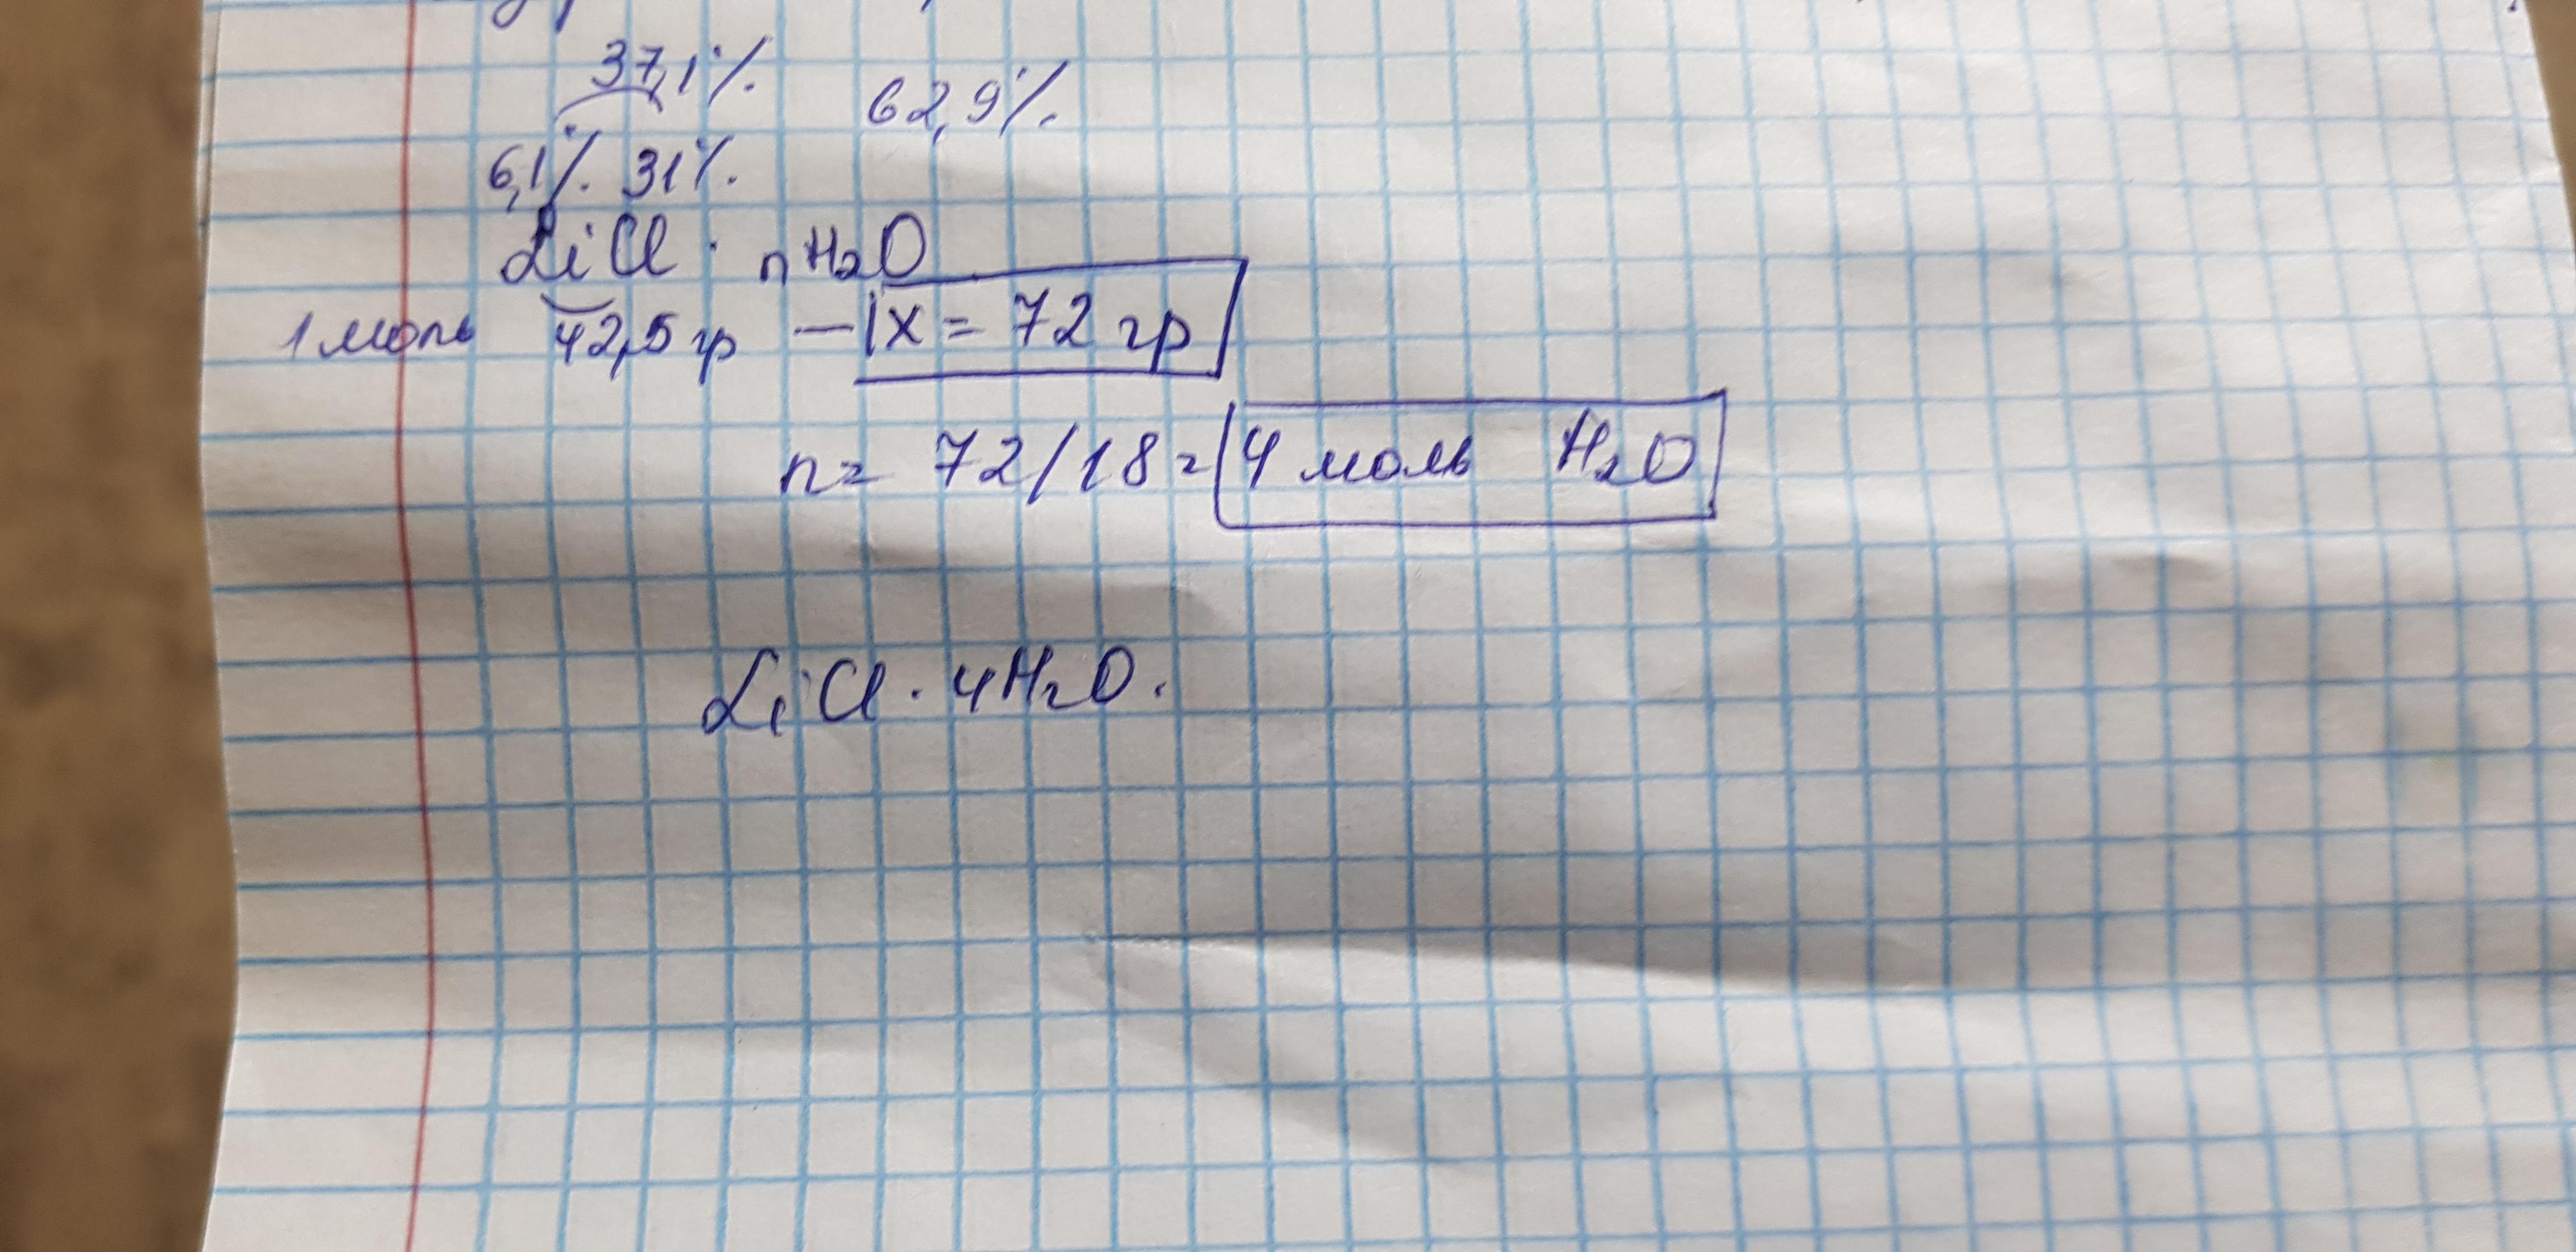 37,1%
62,9%
6,1% 31%
LiCl · nH₂O
1 моль 42,5 гр — x = 72 гр
n = 72/18 = 4 моль H₂O
LiCl · 4H₂O.